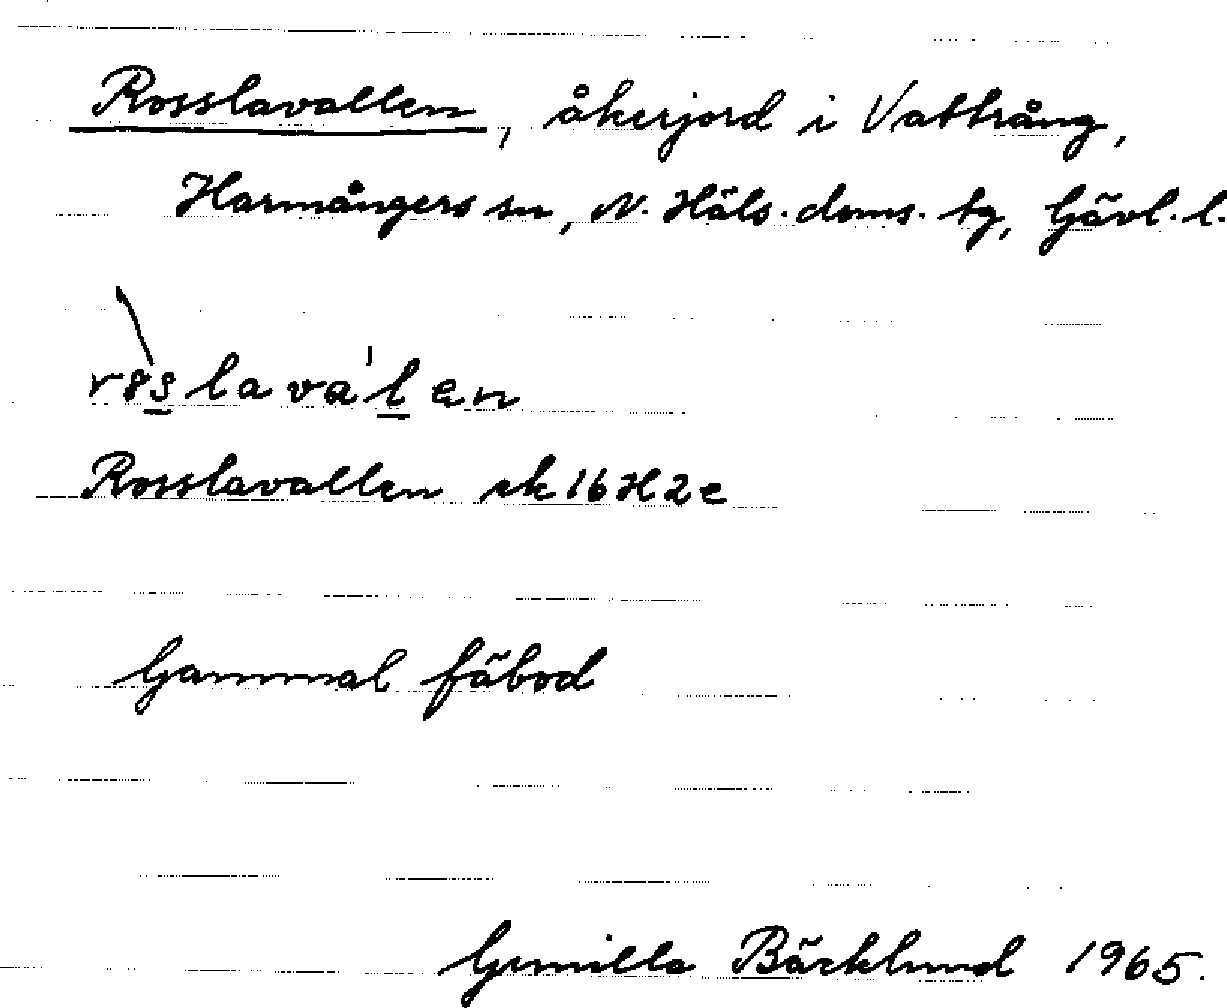 Rosslavallen, åkerjord i Vattrång,
Harmångers sn, N. Häls. doms. tg, Gävl. l.
Rosslavallen ek 16H2c
Gammal fäbod
Gunilla Bäcklund 1965.